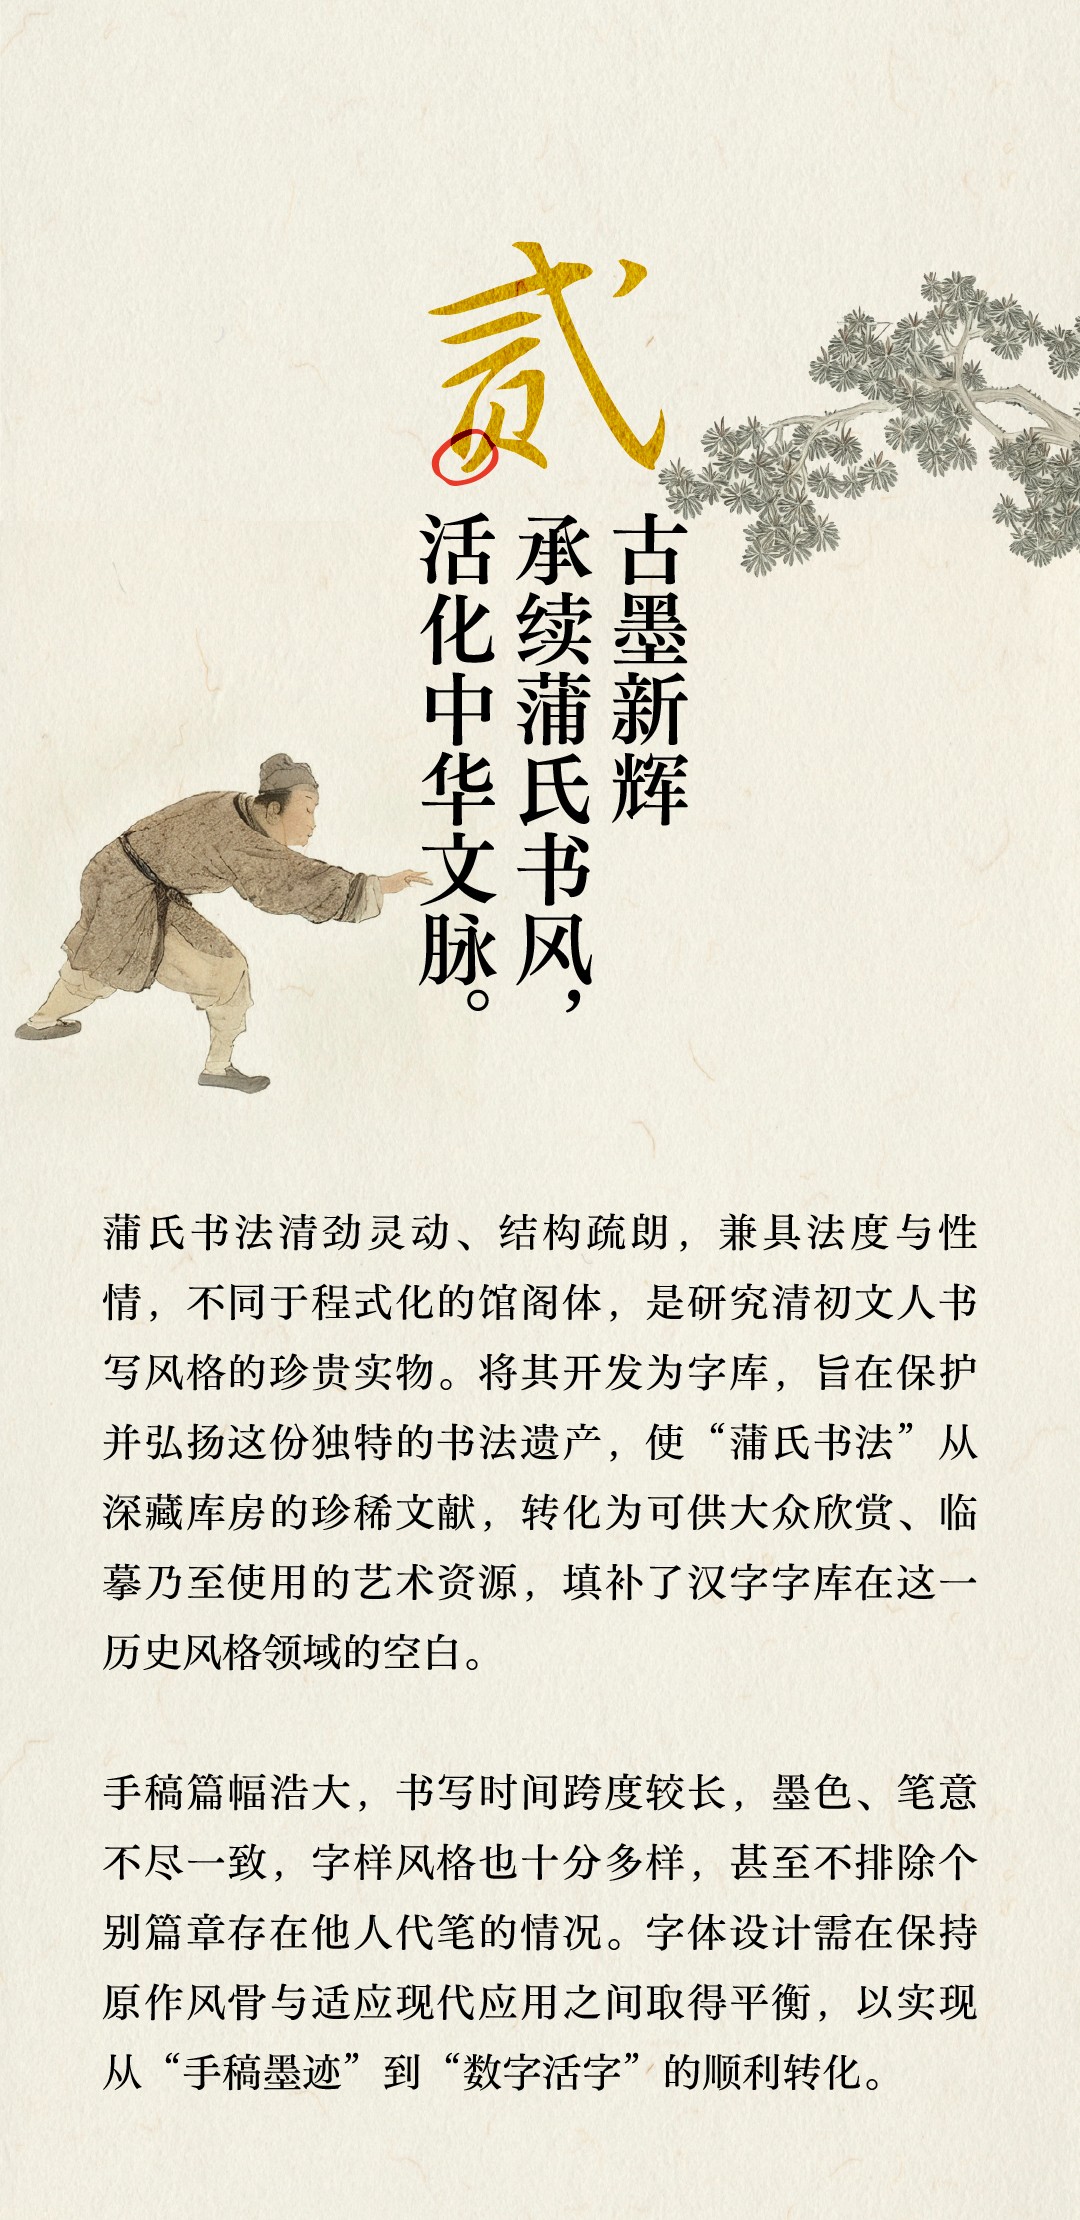 贰
古墨新辉
承续蒲氏书风，
活化中华文脉。
蒲氏书法清劲灵动、结构疏朗，兼具法度与性
情，不同于程式化的馆阁体，是研究清初文人书
写风格的珍贵实物。将其开发为字库，旨在保护
并弘扬这份独特的书法遗产，使“蒲氏书法”从
深藏库房的珍稀文献，转化为可供大众欣赏、临
摹乃至使用的艺术资源，填补了汉字字库在这一
历史风格领域的空白。
手稿篇幅浩大，书写时间跨度较长，墨色、笔意
不尽一致，字样风格也十分多样，甚至不排除个
别篇章存在他人代笔的情况。字体设计需在保持
原作风骨与适应现代应用之间取得平衡，以实现
从“手稿墨迹”到“数字活字”的顺利转化。